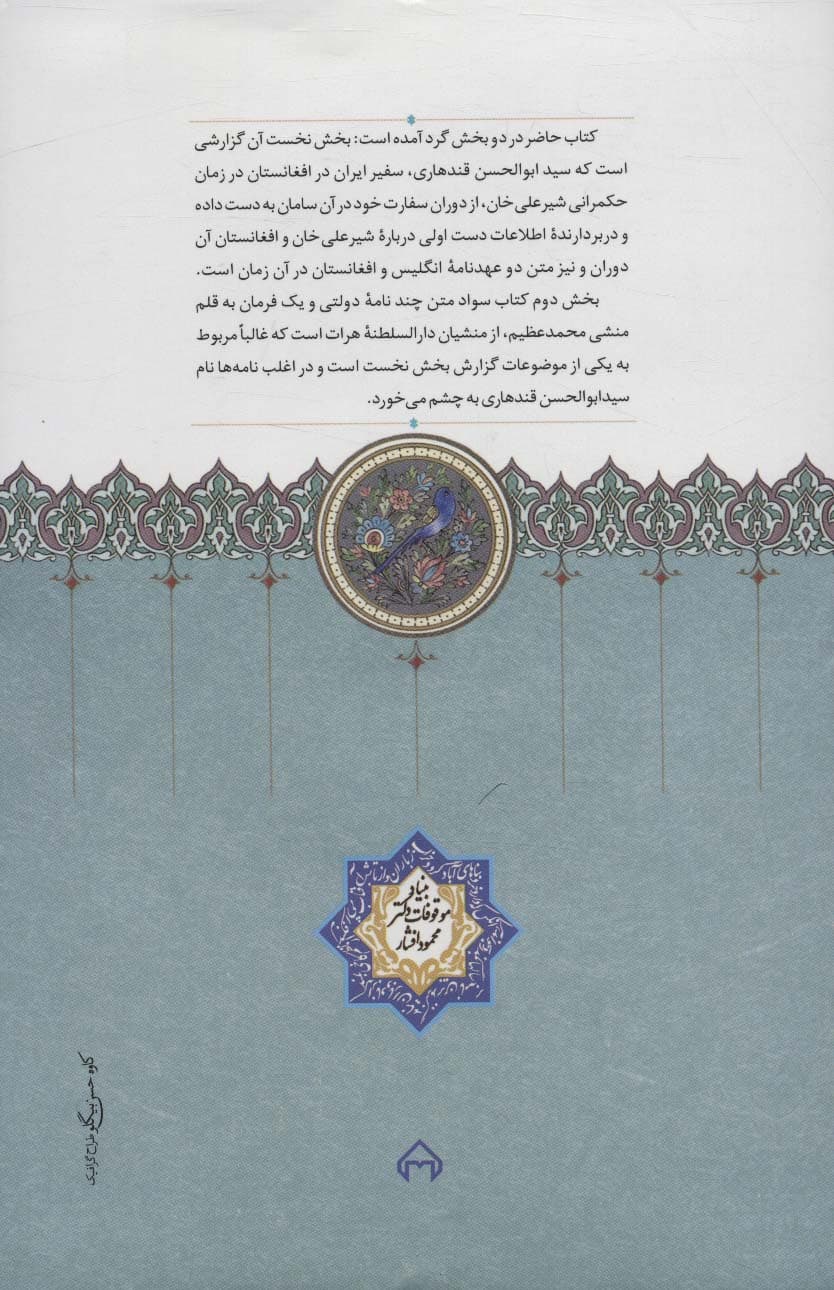 کتاب حاضر در دو بخش گرد آمده است: بخش نخست آن گزارشی
است که سید ابوالحسن قندهاری، سفیر ایران در افغانستان در زمان
حکمرانی شیرعلی‌خان، از دوران سفارت خود در آن سامان به دست داده
و دربردارندهٔ اطلاعات دست اولی دربارهٔ شیرعلی‌خان و افغانستان آن
دوران و نیز متن دو عهدنامهٔ انگلیس و افغانستان در آن زمان است.
بخش دوم کتاب سواد متن چند نامهٔ دولتی و یک فرمان به قلم
منشی محمدعظیم، از منشیان دارالسلطنهٔ هرات است که غالباً مربوط
به یکی از موضوعات گزارش بخش نخست است و در اغلب نامه‌ها نام
سیدابوالحسن قندهاری به چشم می‌خورد.
بنیاد
موقوفات دکتر
محمود افشار
کاوه حسن‌بیگلو طراح گرافیک